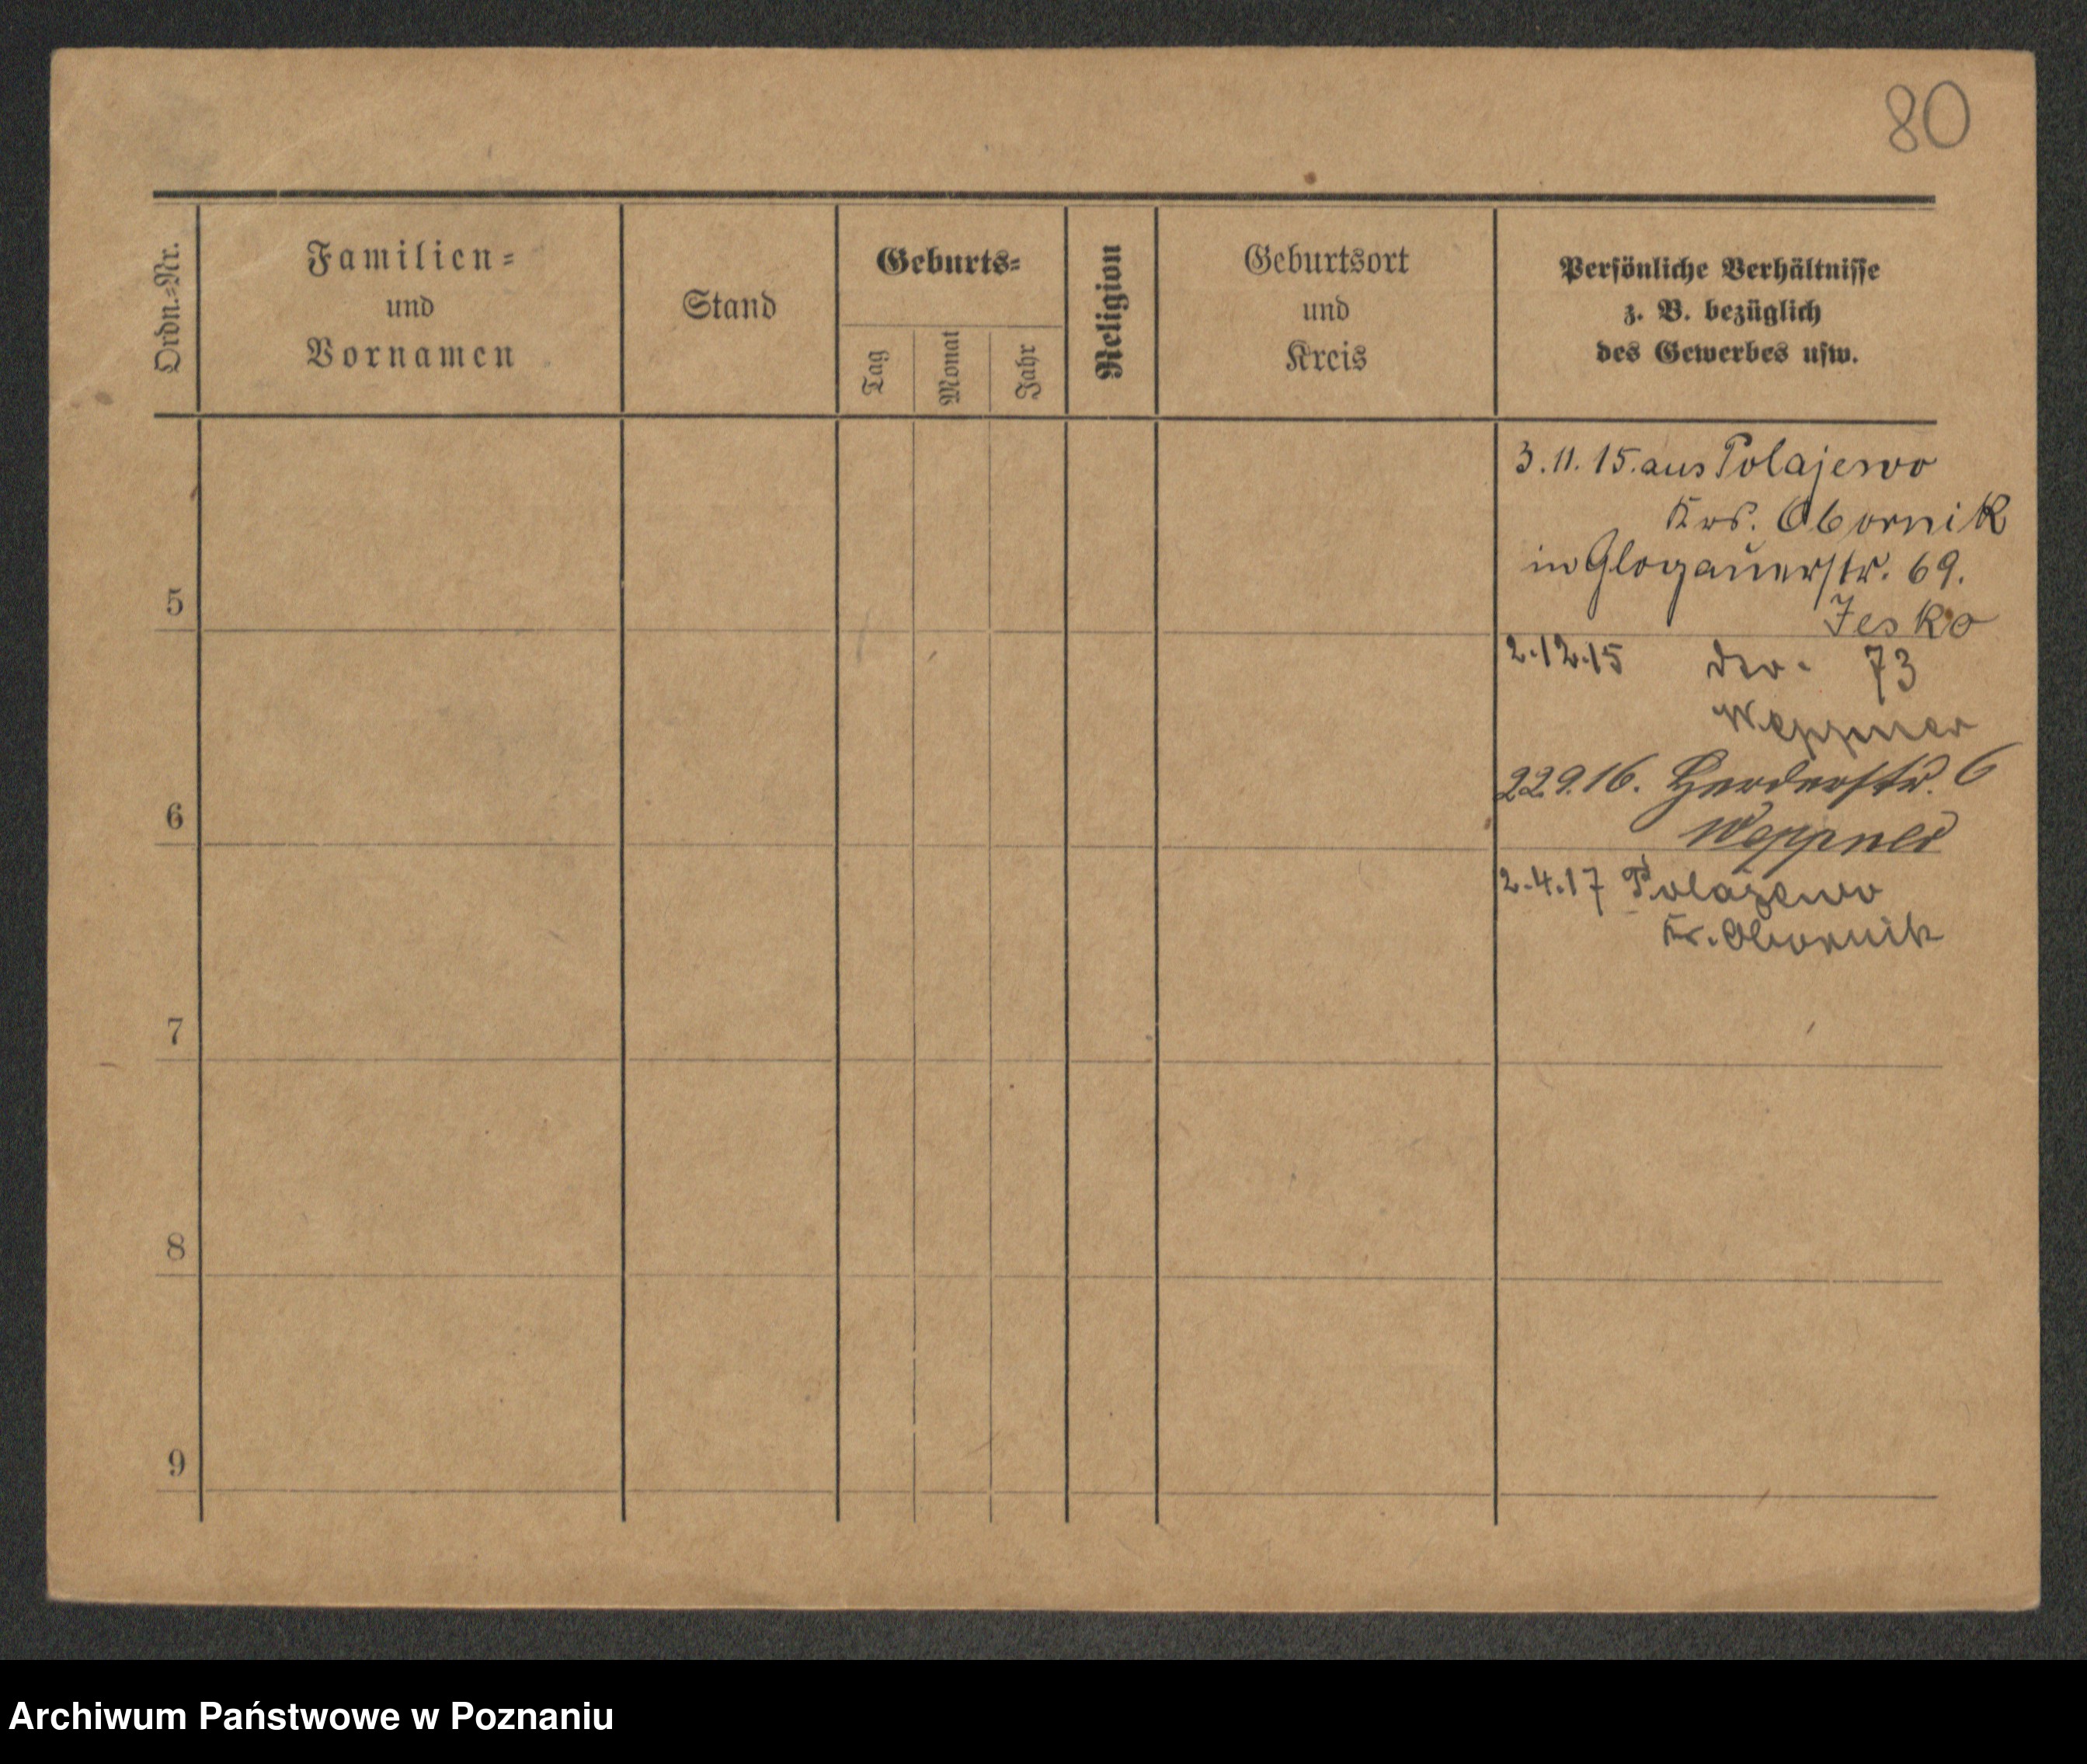 80
Ordn.-Nr.
Familien-
und
Vornamen
Stand
Geburts-
Tag
Monat
Jahr
Religion
Geburtsort
und
Kreis
Persönliche Verhältnisse
z. B. bezüglich
des Gewerbes usw.
3.11.15. aus Polajewo
Krs. Obornik
in Glogauerstr. 69.
Jesko
5
2.12.15 dto. 73
Weppner
22.9.16. Herderstr. 6
Weppner
6
2.4.17 Polajewo
Kr. Obornik
7
8
9
Archiwum Państwowe w Poznaniu